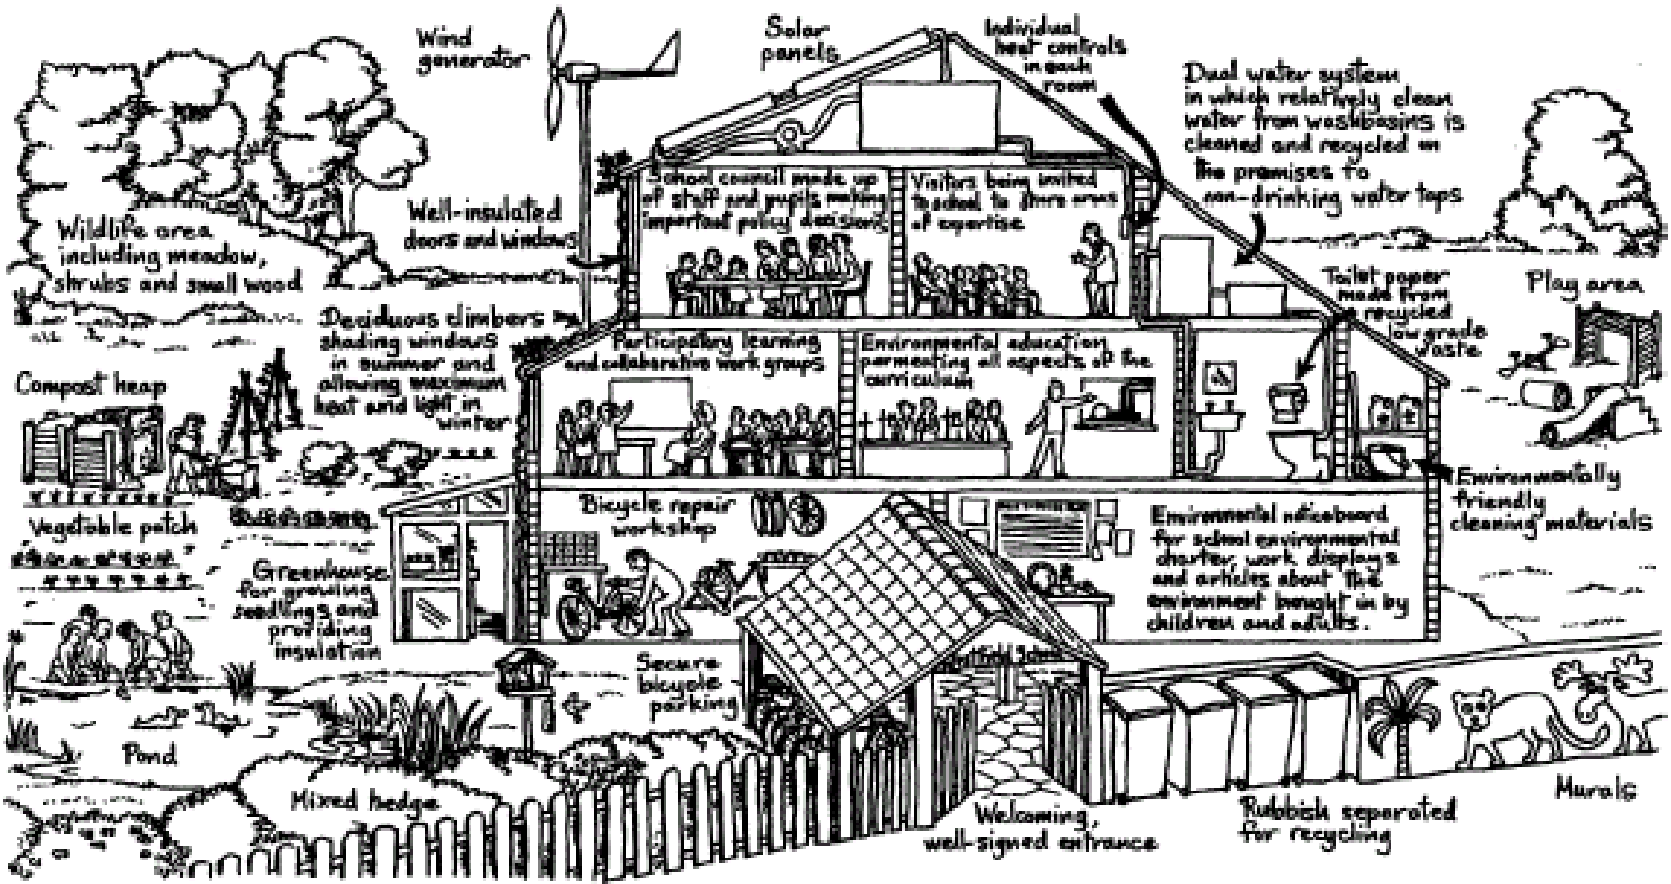 Wind
generator
Solar
panels
Individual
heat controls
in each
room
Dual water system
in which relatively clean
water from washbasins is
cleaned and recycled on
the premises to
non-drinking water taps
School council made up
of staff and pupils making
important policy decisions
Visitors being invited
to school to share areas
of expertise
Well-insulated
doors and windows
Wildlife area
including meadow,
shrubs and small wood
Toilet paper
made from
recycled
low grade
waste
Play area
Deciduous climbers
shading windows
in summer and
allowing maximum
heat and light in
winter
Participatory learning
and collaborative work groups
Environmental education
permeating all aspects of the
curriculum
Compost heap
Environmentally
friendly
cleaning materials
Vegetable patch
Bicycle repair
workshop
Environmental noticeboard
for school environmental
charter, work displays
and articles about the
environment bought in by
children and adults.
Greenhouse
for growing
seedlings and
providing
insulation
Secure
bicycle
parking
School
Pond
Mixed hedge
Welcoming,
well-signed entrance
Rubbish separated
for recycling
Murals